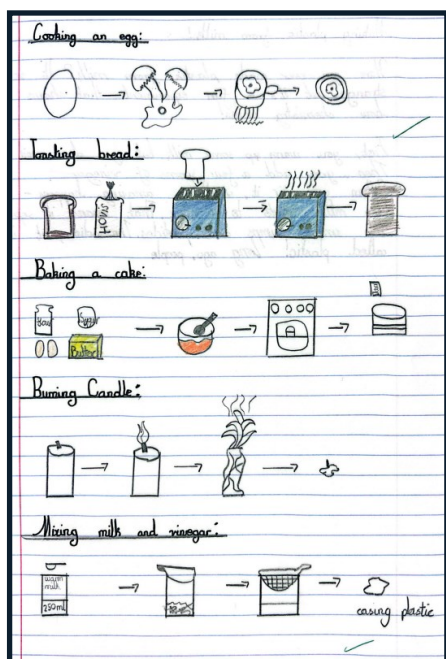 Cooking an egg:
Toasting bread:
HOVIS
Baking a cake:
flour Sugar
Butter
Burning Candle:
Mixing milk and vinegar:
warm
milk
250ml
casing plastic